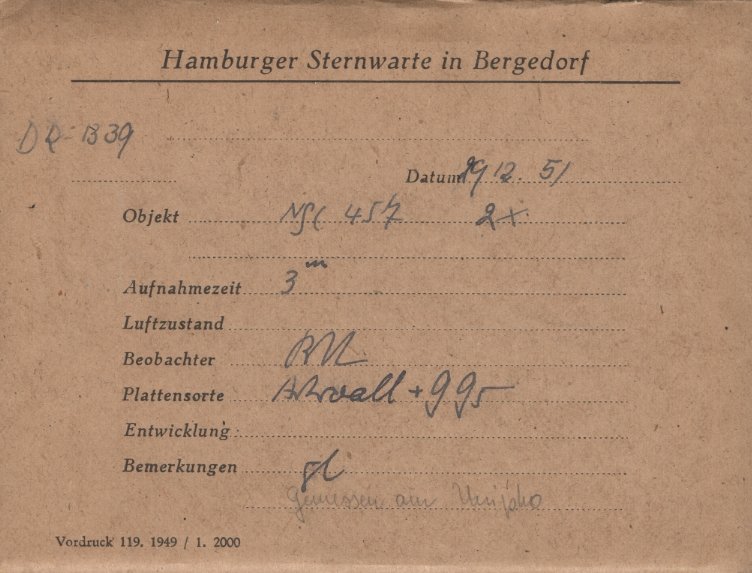 Hamburger Sternwarte in Bergedorf
DR- 1339
Datum 29 12. 51
Objekt NGC 457 2x
Aufnahmezeit 3 m
Luftzustand
Beobachter
Plattensorte + 995
Entwicklung
Bemerkungen
Gemessen am
Vordruck 119. 1949 / 1. 2000